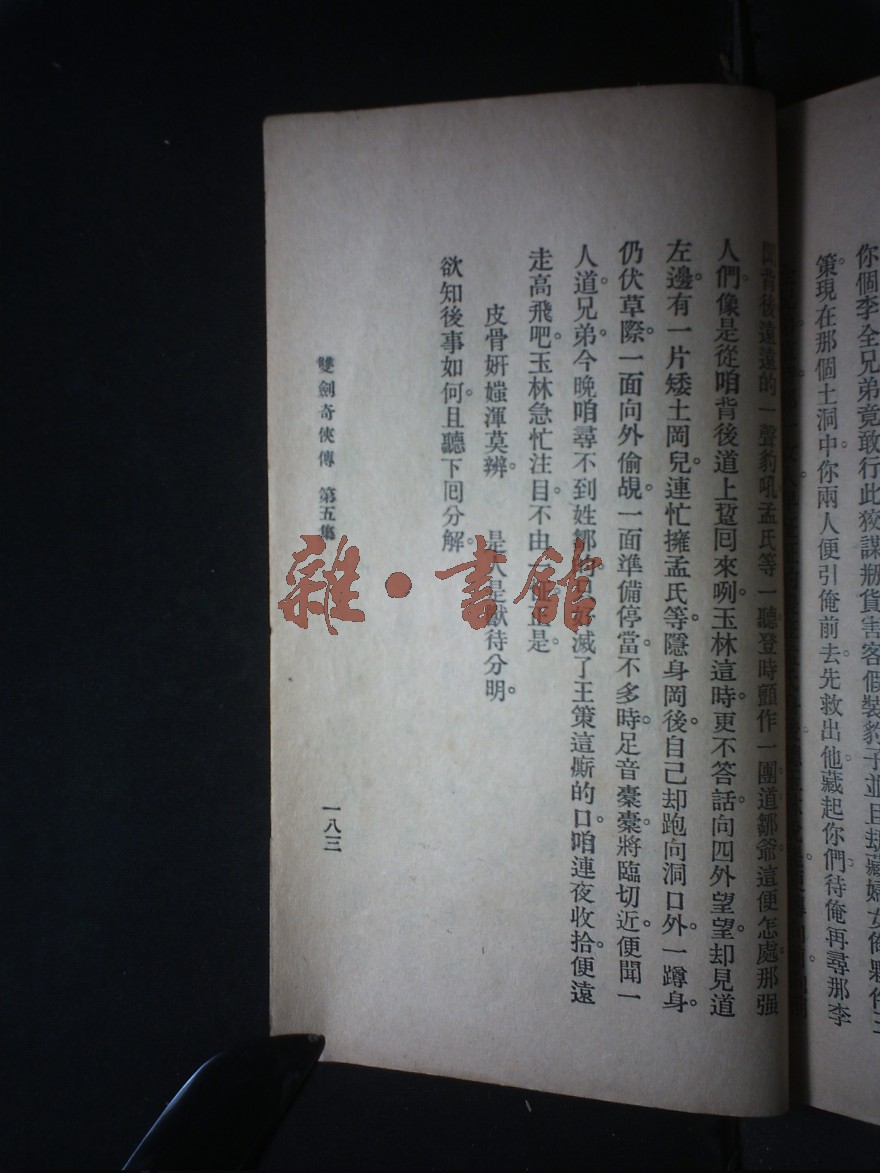 你個李全兄弟竟敢行此狡謀掰貨害客假裝豹子並且刦藏婦女俺夥伴王
策現在那個土洞中。你兩人便引俺前去先救出他。藏起你們。待俺再尋那李
背後遠遠的一聲豹吼。孟氏等一聽登時顫作一團道。鄒爺這便怎處。那强
人們像是從咱背後道上踅囘來咧。玉林這時更不答話。向四外望望。却見道
左邊有一片矮土岡兒。連忙擁孟氏等隱身岡後。自己却跑向洞口外。一蹲身。
仍伏草際。一面向外偷覘。一面準備停當。不多時足音橐橐。將臨切近。便聞一
人道。兄弟。今晚咱尋不到姓鄒的。滅了王策這廝的口。咱連夜收拾。便遠
走高飛吧。玉林急忙注目。不由正是
皮骨妍媸渾莫辨。 是人是獸待分明。
欲知後事如何。且聽下囘分解。
雙劍奇俠傳 第五集
一八三
雜·書館